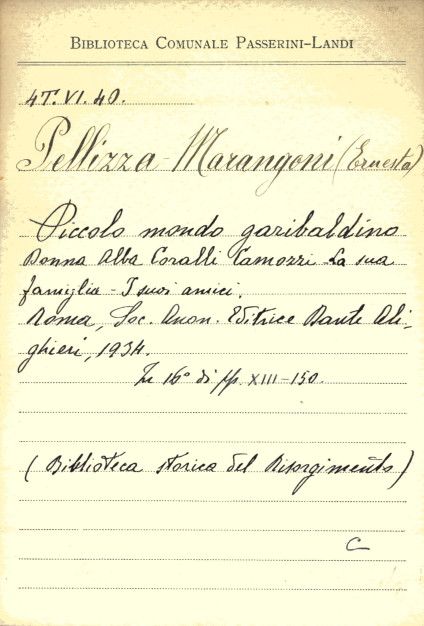 BIBLIOTECA COMUNALE PASSERINI-LANDI
4T.VI.40.
Pellizza-Marangoni (Ernesta)
Piccolo mondo garibaldino
Donna Alba Coralli Camozzi - La sua
famiglia - I suoi amici.
Roma, Soc. Anon. Editrice Dante Ali-
ghieri, 1934.
In 16° di pp. XIII-150.
(Biblioteca storica del Risorgimento)
C